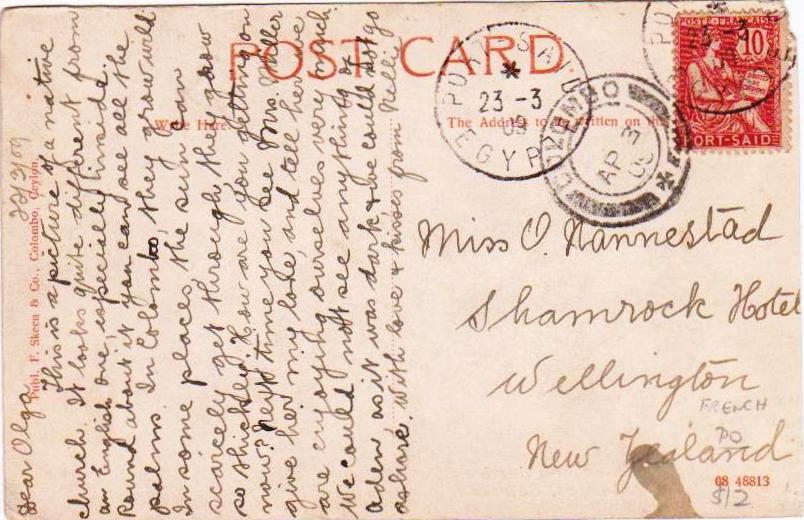 POST CARD.
Write Here
The Address to be written on this
Publ. F. Skeen & Co., Colombo, Ceylon.
22/3/09
Dear Olga
This is a picture of a native
church. It looks quite different from
an English one, especially inside.
Round about it you can see all the
palms. In Colombo, they grow wild
In some places, the sun can
scarcely get through, they grow
so thickly. How are you getting on
now? Next time you see Mrs. Miller
give her my love, and tell her we
are enjoying ourselves very much.
We could not see anything of
Aden as it was dark & we could not go
ashore. With love & kisses from Nellie
PORT-SAID
*
23 -3
09
EGYPT
COLOMBO
AP 3
09
POSTE FRANÇAISE
10
PORT-SAID
23 -3
Miss O. Nannestad
Shamrock Hotel
Wellington
New Zealand
FRENCH
PO
08 48813
5/2